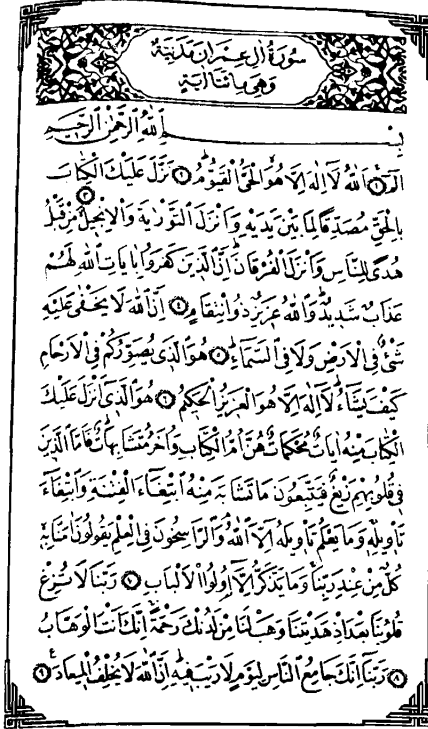 سُورَةُ اٰلِ عِمْرٰانَ مَدَنِيَّةٌ
وَهِيَ مِائَتَا اٰيَةٍ
بِسْــــــــمِ اللّٰهِ الرَّحْمٰنِ الرَّحِيمِ
الٓمٓ ﴿١﴾ اَللّٰهُ لَٓا اِلٰهَ اِلَّا هُوَ الْحَيُّ الْقَيُّومُ ﴿٢﴾ نَزَّلَ عَلَيْكَ الْكِتَابَ
بِالْحَقِّ مُصَدِّقًا لِمَا بَيْنَ يَدَيْهِ وَاَنْزَلَ التَّوْرٰيةَ وَالْاِنْجِيلَ ﴿٣﴾ مِنْ قَبْلُ
هُدًى لِلنَّاسِ وَاَنْزَلَ الْفُرْقَانَ اِنَّ الَّذِينَ كَفَرُوا بِاٰيَاتِ اللّٰهِ لَهُمْ
عَذَابٌ شَدِيدٌ وَاللّٰهُ عَزِيزٌ ذُو انْتِقَامٍ ﴿٤﴾ اِنَّ اللّٰهَ لَا يَخْفٰى عَلَيْهِ
شَيْءٌ فِي الْاَرْضِ وَلَا فِي السَّمَٓاءِ ﴿٥﴾ هُوَ الَّذِي يُصَوِّرُكُمْ فِي الْاَرْحَامِ
كَيْفَ يَشَٓاءُ لَٓا اِلٰهَ اِلَّا هُوَ الْعَزِيزُ الْحَكِيمُ ﴿٦﴾ هُوَ الَّذِٓي اَنْزَلَ عَلَيْكَ
الْكِتَابَ مِنْهُ اٰيَاتٌ مُحْكَمَاتٌ هُنَّ اُمُّ الْكِتَابِ وَاُخَرُ مُتَشَابِهَاتٌ فَاَمَّا الَّذِينَ
فِي قُلُوبِهِمْ زَيْغٌ فَيَتَّبِعُونَ مَا تَشَابَهَ مِنْهُ ابْتِغَٓاءَ الْفِتْنَةِ وَابْتِغَٓاءَ
تَأْوِيلِهِ وَمَا يَعْلَمُ تَأْوِيلَهُٓ اِلَّا اللّٰهُ وَالرَّاسِخُونَ فِي الْعِلْمِ يَقُولُونَ اٰمَنَّا بِهِ
كُلٌّ مِنْ عِنْدِ رَبِّنَا وَمَا يَذَّكَّرُ اِلَّٓا اُولُوا الْاَلْبَابِ ﴿٧﴾ رَبَّنَا لَا تُزِغْ
قُلُوبَنَا بَعْدَ اِذْ هَدَيْتَنَا وَهَبْ لَنَا مِنْ لَدُنْكَ رَحْمَةً اِنَّكَ اَنْتَ الْوَهَّابُ
﴿٨﴾ رَبَّنَٓا اِنَّكَ جَامِعُ النَّاسِ لِيَوْمٍ لَا رَيْبَ فِيهِ اِنَّ اللّٰهَ لَا يُخْلِفُ الْمِيعَادَ ﴿٩﴾